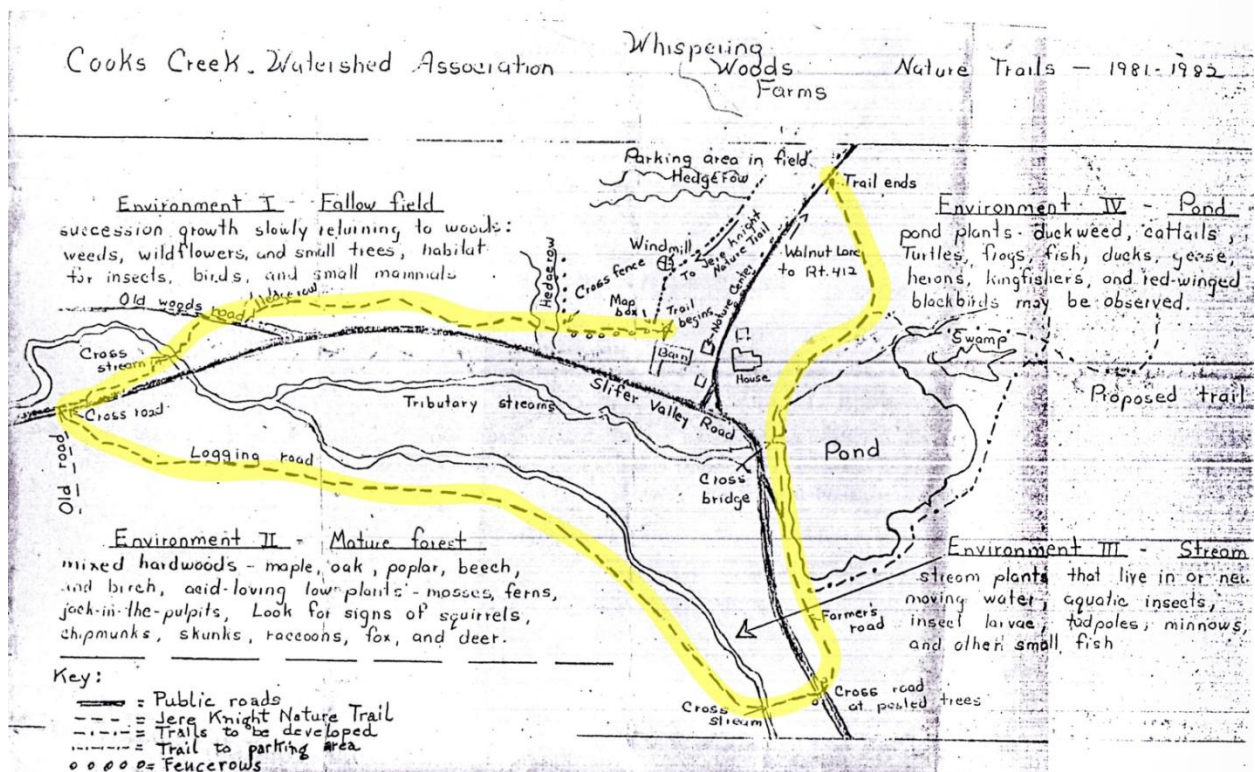 Cooks Creek. Watershed Association
Whispering
Woods
Farms
Nature Trails — 1981-1982
Parking area in field
Hedge row
Trail ends
Environment I - Fallow field
succession growth slowly returning to woods:
weeds, wildflowers, and small trees, habitat
for insects, birds, and small mammals.
Environment IV - Pond
pond plants - duckweed, cattails,
Turtles, frogs, fish, ducks, geese,
herons, kingfishers, and red-winged
blackbirds may be observed.
Windmill
To Jere Knight
Nature Trail
Walnut Lane
to Rt. 412
Hedgerow
Cross fence
Map
box
Trail
begins
Nature Center
Old woods road
Hedgerow
Cross
stream
Barn
House
Swamp
Proposed trail
Slifer Valley Road
Tributary streams
Cross road
Old road
Logging road
Pond
Cross
bridge
Environment II - Mature forest
mixed hardwoods - maple, oak, poplar, beech,
and birch, acid-loving low plants - mosses, ferns,
jack-in-the-pulpits, Look for signs of squirrels,
chipmunks, skunks, raccoons, fox, and deer.
Environment III - Stream
stream plants that live in or
moving water, aquatic insects,
insect larvae, tadpoles, minnows,
and other small fish
Farmer's
road
Cross road
at peeled trees
Cross
stream
Key:
= Public roads
= Jere Knight Nature Trail
= Trails to be developed
= Trail to parking area
= Fencerows